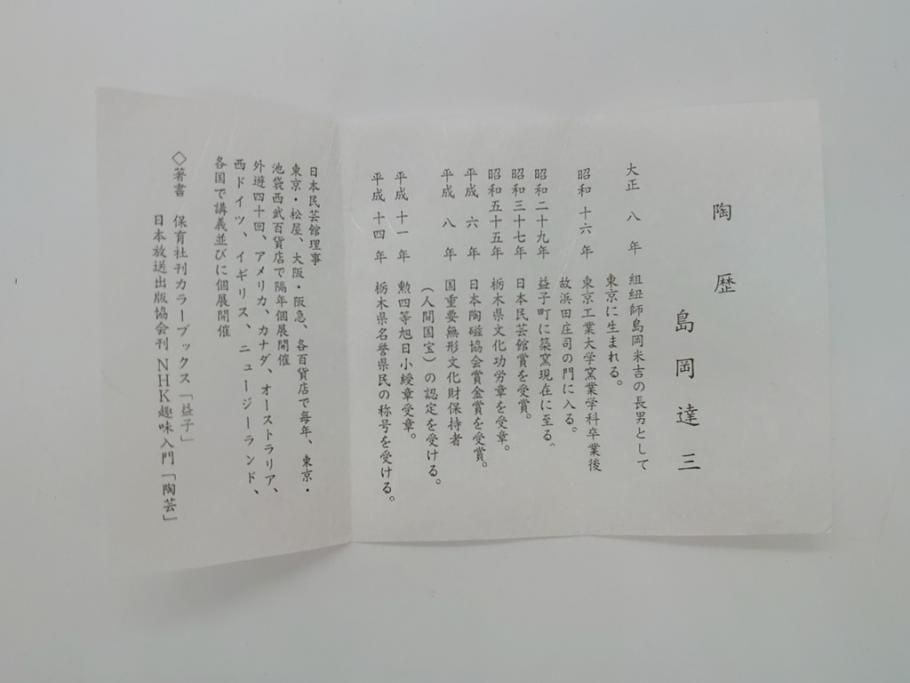 陶歴
島岡達三
大正 八 年 組紐師島岡米吉の長男として
東京に生まれる。
昭和 十六 年 東京工業大学窯業学科卒業後
故浜田庄司の門に入る。
昭和二十九年 益子町に築窯現在に至る。
昭和三十七年 日本民芸館賞を受賞。
昭和五十五年 栃木県文化功労章を受章。
平成 六 年 日本陶磁協会賞金賞を受賞。
平成 八 年 国重要無形文化財保持者
(人間国宝)の認定を受ける。
平成 十一 年 勲四等旭日小綬章受章。
平成 十四 年 栃木県名誉県民の称号を受ける。
日本民芸館理事
東京・松屋、大阪・阪急、各百貨店で毎年、東京・
池袋西武百貨店で隔年個展開催
外遊四十回、アメリカ、カナダ、オーストラリア、
西ドイツ、イギリス、ニュージーランド、
各国で講義並びに個展開催
◇著書 保育社刊カラーブックス「益子」
日本放送出版協会刊 NHK趣味入門「陶芸」